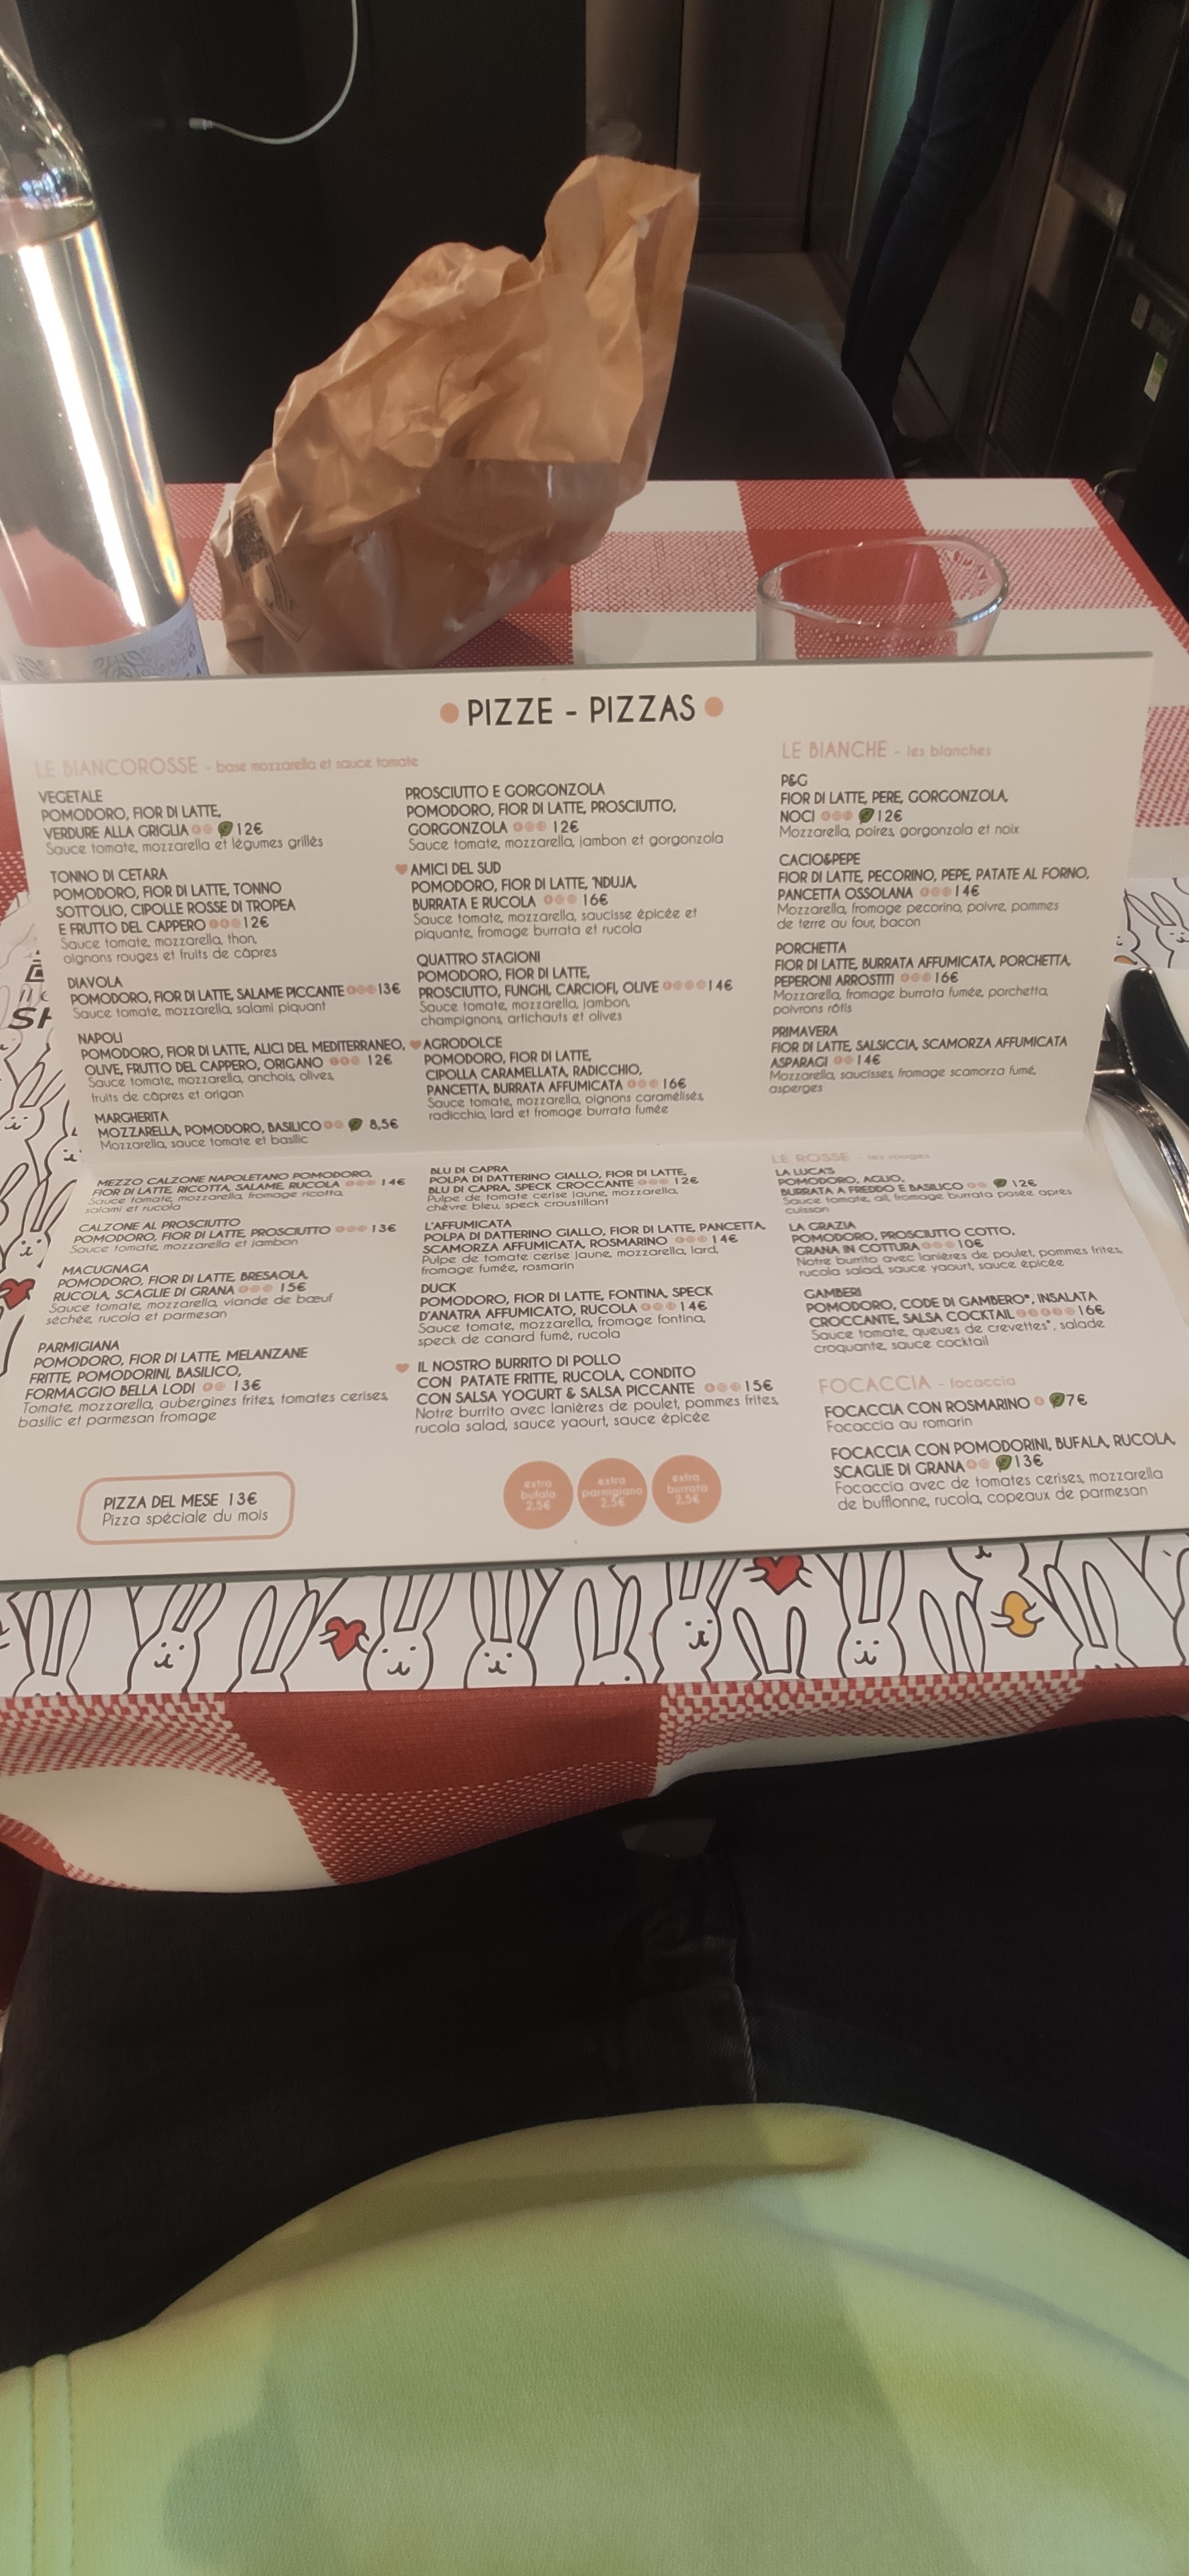 PIZZE - PIZZAS
LE BIANCOROSSE - base mozzarella et sauce tomate
VEGETALE
POMODORO, FIOR DI LATTE,
VERDURE ALLA GRIGLIA 12€
Sauce tomate, mozzarella et légumes grillés
TONNO DI CETARA
POMODORO, FIOR DI LATTE, TONNO
SOTTOLIO, CIPOLLE ROSSE DI TROPEA
E FRUTTO DEL CAPPERO 12€
Sauce tomate, mozzarella, thon,
oignons rouges et fruits de câpres
DIAVOLA
POMODORO, FIOR DI LATTE, SALAME PICCANTE 13€
Sauce tomate, mozzarella, salami piquant
NAPOLI
POMODORO, FIOR DI LATTE, ALICI DEL MEDITERRANEO,
OLIVE, FRUTTO DEL CAPPERO, ORIGANO 12€
Sauce tomate, mozzarella, anchois, olives,
fruits de câpres et origan
MARGHERITA
MOZZARELLA, POMODORO, BASILICO 8,5€
Mozzarella, sauce tomate et basilic
MEZZO CALZONE NAPOLETANO POMODORO,
FIOR DI LATTE, RICOTTA, SALAME, RUCOLA 14€
Sauce tomate, mozzarella, fromage ricotta,
salami et rucola
CALZONE AL PROSCIUTTO
POMODORO, FIOR DI LATTE, PROSCIUTTO 13€
Sauce tomate, mozzarella et jambon
MACUGNAGA
POMODORO, FIOR DI LATTE, BRESAOLA,
RUCOLA, SCAGLIE DI GRANA 15€
Sauce tomate, mozzarella, viande de bœuf
séchée, rucola et parmesan
PARMIGIANA
POMODORO, FIOR DI LATTE, MELANZANE
FRITTE, POMODORINI, BASILICO,
FORMAGGIO BELLA LODI 13€
Tomate, mozzarella, aubergines frites, tomates cerises,
basilic et parmesan fromage
PIZZA DEL MESE 13€
Pizza spéciale du mois
PROSCIUTTO E GORGONZOLA
POMODORO, FIOR DI LATTE, PROSCIUTTO,
GORGONZOLA 12€
Sauce tomate, mozzarella, jambon et gorgonzola
AMICI DEL SUD
POMODORO, FIOR DI LATTE, 'NDUJA,
BURRATA E RUCOLA 16€
Sauce tomate, mozzarella, saucisse épicée et
piquante, fromage burrata et rucola
QUATTRO STAGIONI
POMODORO, FIOR DI LATTE,
PROSCIUTTO, FUNGHI, CARCIOFI, OLIVE 14€
Sauce tomate, mozzarella, jambon,
champignons, artichauts et olives
AGRODOLCE
POMODORO, FIOR DI LATTE,
CIPOLLA CARAMELLATA, RADICCHIO,
PANCETTA, BURRATA AFFUMICATA 16€
Sauce tomate, mozzarella, oignons caramélisés,
radicchio, lard et fromage burrata fumée
BLU DI CAPRA
POLPA DI DATTERINO GIALLO, FIOR DI LATTE,
BLU DI CAPRA, SPECK CROCCANTE 12€
Pulpe de tomate cerise jaune, mozzarella,
chèvre bleu, speck croustillant
L'AFFUMICATA
POLPA DI DATTERINO GIALLO, FIOR DI LATTE, PANCETTA,
SCAMORZA AFFUMICATA, ROSMARINO 14€
Pulpe de tomate cerise jaune, mozzarella, lard,
fromage fumée, rosmarin
DUCK
POMODORO, FIOR DI LATTE, FONTINA, SPECK
D'ANATRA AFFUMICATO, RUCOLA 14€
Sauce tomate, mozzarella, fromage fontina,
speck de canard fumé, rucola
IL NOSTRO BURRITO DI POLLO
CON PATATE FRITTE, RUCOLA, CONDITO
CON SALSA YOGURT & SALSA PICCANTE 15€
Notre burrito avec lanières de poulet, pommes frites,
rucola salad, sauce yaourt, sauce épicée
extra
bufala
2,5€
extra
parmigiana
2,5€
extra
burrata
2,5€
LE BIANCHE - les blanches
P&G
FIOR DI LATTE, PERE, GORGONZOLA,
NOCI 12€
Mozzarella, poires, gorgonzola et noix
CACIO&PEPE
FIOR DI LATTE, PECORINO, PEPE, PATATE AL FORNO,
PANCETTA OSSOLANA 14€
Mozzarella, fromage pecorino, poivre, pommes
de terre au four, bacon
PORCHETTA
FIOR DI LATTE, BURRATA AFFUMICATA, PORCHETTA,
PEPERONI ARROSTITI 16€
Mozzarella, fromage burrata fumée, porchetta,
poivrons rôtis
PRIMAVERA
FIOR DI LATTE, SALSICCIA, SCAMORZA AFFUMICATA
ASPARAGI 14€
Mozzarella, saucisses, fromage scamorza fumé,
asperges
LE ROSSE - les rouges
LA LUCA'S
POMODORO, AGLIO,
BURRATA A FREDDO E BASILICO 12€
Sauce tomate, ail, fromage burrata posée après
cuisson
LA GRAZIA
POMODORO, PROSCIUTTO COTTO,
GRANA IN COTTURA 10€
Notre burrito avec lanières de poulet, pommes frites,
rucola salad, sauce yaourt, sauce épicée
GAMBERI
POMODORO, CODE DI GAMBERO*, INSALATA
CROCCANTE, SALSA COCKTAIL 16€
Sauce tomate, queues de crevettes*, salade
croquante, sauce cocktail
FOCACCIA - focaccia
FOCACCIA CON ROSMARINO 7€
Focaccia au romarin
FOCACCIA CON POMODORINI, BUFALA, RUCOLA,
SCAGLIE DI GRANA 13€
Focaccia avec de tomates cerises, mozzarella
de bufflonne, rucola, copeaux de parmesan